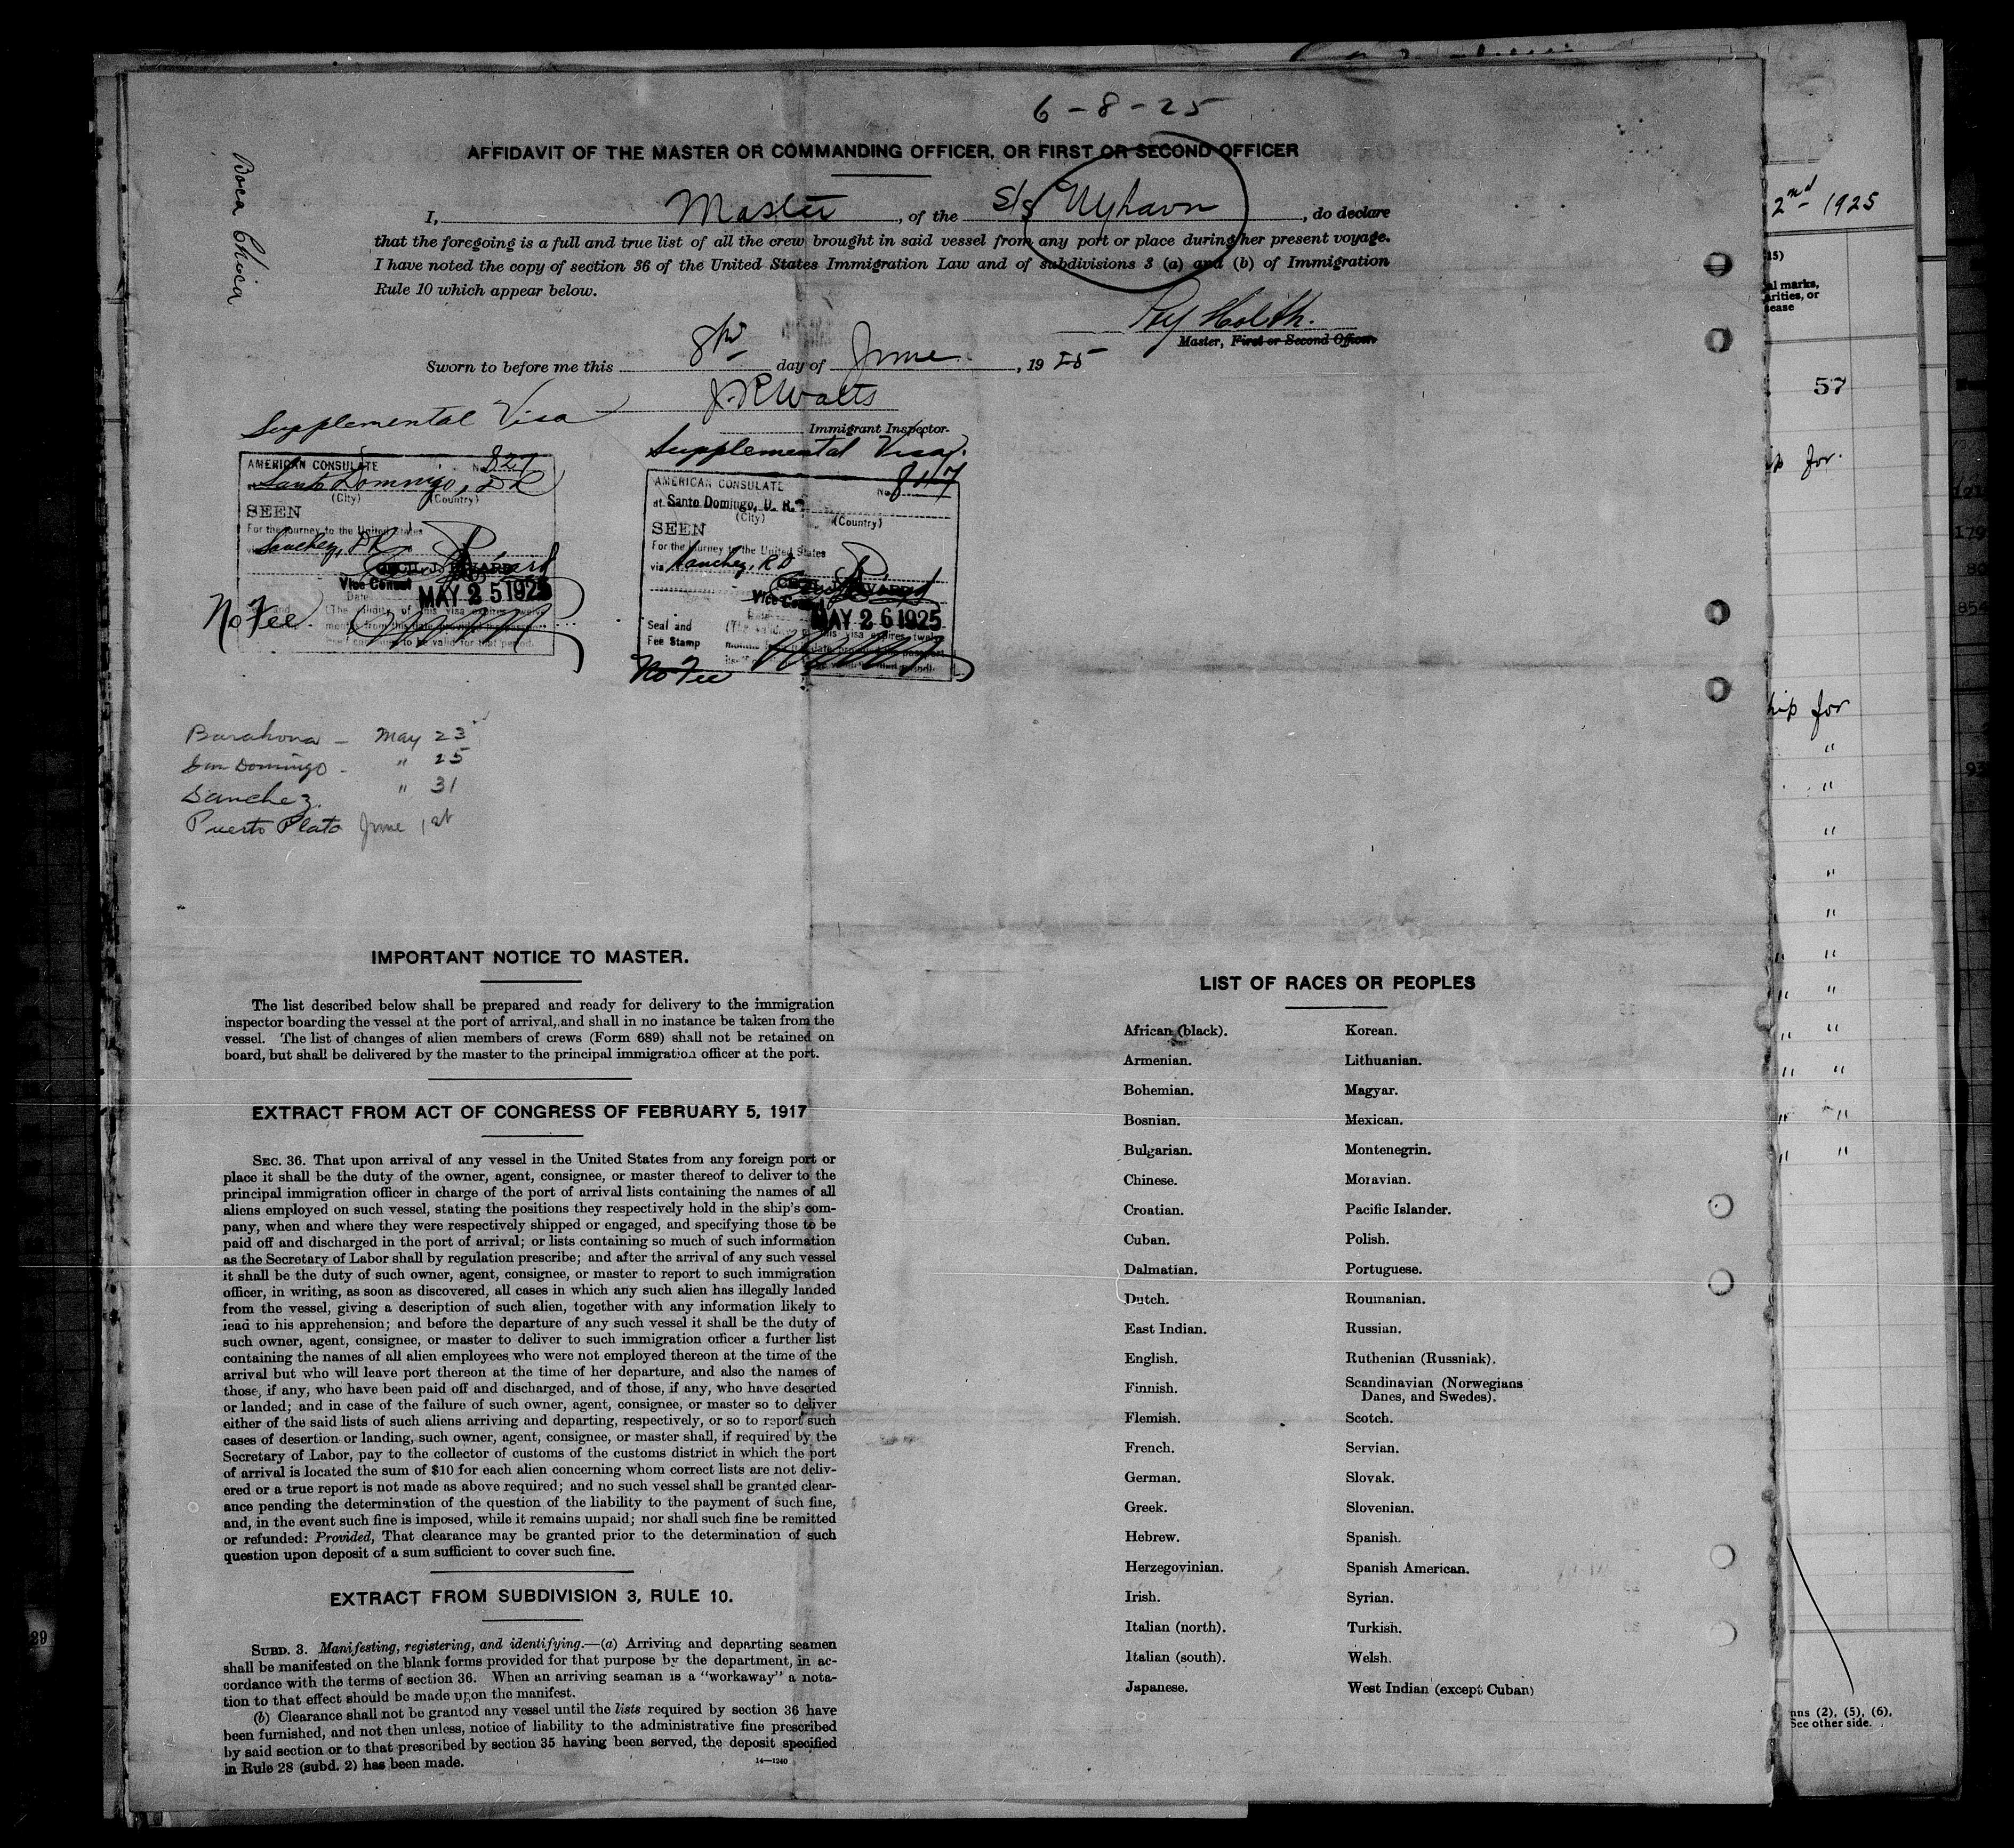 6-8-25
AFFIDAVIT OF THE MASTER OR COMMANDING OFFICER, OR FIRST OR SECOND OFFICER
Boca Chica
I, Master, of the S/S Nyhavn, do declare
that the foregoing is a full and true list of all the crew brought in said vessel from any port or place during her present voyage.
I have noted the copy of section 36 of the United States Immigration Law and of subdivisions 3 (a) and (b) of Immigration
Rule 10 which appear below.
Holth.
Master, First or Second Officer.
Sworn to before me this 8th day of June, 1925
J. R. Watts
Immigrant Inspector.
Supplemental Visa
AMERICAN CONSULATE No. 827
Santo Domingo, D R
(City) (Country)
SEEN
For the journey to the United States
via Sanchez, D R
Vice Consul
Date
MAY 25 1925
(The validity of this visa expires twelve
months from this date provided the passport
itself continues to be valid for that period.
No Fee
Supplemental Visa.
AMERICAN CONSULATE No.
at Santo Domingo, D. R.
(City) (Country)
SEEN
For the journey to the United States
via Sanchez, R D
Vice Consul
MAY 26 1925
Seal and
Fee Stamp
(The validity of this visa expires twelve
months from this date provided the passport
No Fee
Barahona - May 23
San Domingo - " 25
Sanchez. " 31
Puerto Plata June 1st
IMPORTANT NOTICE TO MASTER.
The list described below shall be prepared and ready for delivery to the immigration
inspector boarding the vessel at the port of arrival, and shall in no instance be taken from the
vessel. The list of changes of alien members of crews (Form 689) shall not be retained on
board, but shall be delivered by the master to the principal immigration officer at the port.
EXTRACT FROM ACT OF CONGRESS OF FEBRUARY 5, 1917
SEC. 36. That upon arrival of any vessel in the United States from any foreign port or
place it shall be the duty of the owner, agent, consignee, or master thereof to deliver to the
principal immigration officer in charge of the port of arrival lists containing the names of all
aliens employed on such vessel, stating the positions they respectively hold in the ship's com-
pany, when and where they were respectively shipped or engaged, and specifying those to be
paid off and discharged in the port of arrival; or lists containing so much of such information
as the Secretary of Labor shall by regulation prescribe; and after the arrival of any such vessel
it shall be the duty of such owner, agent, consignee, or master to report to such immigration
officer, in writing, as soon as discovered, all cases in which any such alien has illegally landed
from the vessel, giving a description of such alien, together with any information likely to
lead to his apprehension; and before the departure of any such vessel it shall be the duty of
such owner, agent, consignee, or master to deliver to such immigration officer a further list
containing the names of all alien employees who were not employed thereon at the time of the
arrival but who will leave port thereon at the time of her departure, and also the names of
those, if any, who have been paid off and discharged, and of those, if any, who have deserted
or landed; and in case of the failure of such owner, agent, consignee, or master so to deliver
either of the said lists of such aliens arriving and departing, respectively, or so to report such
cases of desertion or landing, such owner, agent, consignee, or master shall, if required by the
Secretary of Labor, pay to the collector of customs of the customs district in which the port
of arrival is located the sum of $10 for each alien concerning whom correct lists are not deliv-
ered or a true report is not made as above required; and no such vessel shall be granted clear-
ance pending the determination of the question of the liability to the payment of such fine,
and, in the event such fine is imposed, while it remains unpaid; nor shall such fine be remitted
or refunded: Provided, That clearance may be granted prior to the determination of such
question upon deposit of a sum sufficient to cover such fine.
EXTRACT FROM SUBDIVISION 3, RULE 10.
SUBD. 3. Manifesting, registering, and identifying.—(a) Arriving and departing seamen
shall be manifested on the blank forms provided for that purpose by the department, in ac-
cordance with the terms of section 36. When an arriving seaman is a "workaway" a nota-
tion to that effect should be made upon the manifest.
(b) Clearance shall not be granted any vessel until the lists required by section 36 have
been furnished, and not then unless, notice of liability to the administrative fine prescribed
by said section or to that prescribed by section 35 having been served, the deposit specified
in Rule 28 (subd. 2) has been made.
14—1240
LIST OF RACES OR PEOPLES
African (black).
Armenian.
Bohemian.
Bosnian.
Bulgarian.
Chinese.
Croatian.
Cuban.
Dalmatian.
Dutch.
East Indian.
English.
Finnish.
Flemish.
French.
German.
Greek.
Hebrew.
Herzegovinian.
Irish.
Italian (north).
Italian (south).
Japanese.
Korean.
Lithuanian.
Magyar.
Mexican.
Montenegrin.
Moravian.
Pacific Islander.
Polish.
Portuguese.
Roumanian.
Russian.
Ruthenian (Russniak).
Scandinavian (Norwegians
Danes, and Swedes).
Scotch.
Servian.
Slovak.
Slovenian.
Spanish.
Spanish American.
Syrian.
Turkish.
Welsh.
West Indian (except Cuban)
2nd 1925
15)
al marks,
arities, or
sease
57
for.
hip for
"
" "
" "
" "
" "
" "
" "
nns (2), (5), (6),
See other side.
121
179
80
854
93
29